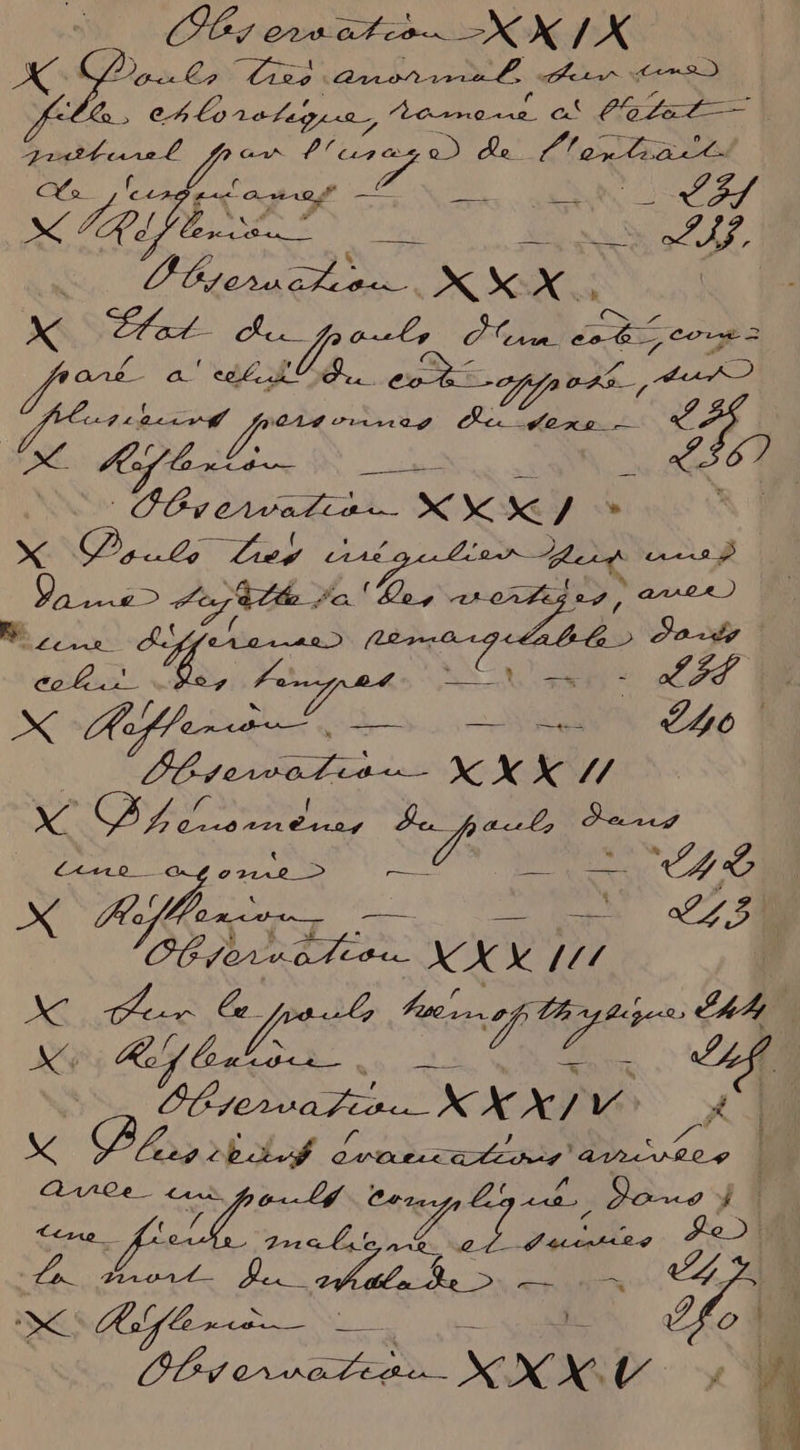 Observation XXIX
X Pouls très anormal, sur une
fille, chlorotique, ramené à l'état
naturel par l'usage de l'extrait
de — — — 231
X Réflexion — — — 233.
Observation XXX.
X Etat du pouls d'un coté, com=
paré a' celui du coté opposé, sur
plusieurs personnes du sexe —
X Réflexion — — — 236
Observation XXXI
X Pouls très irrégulier sur une
Dame sujette a' des vertiges, avec
une différence remarquable dans
celui des tempes — — -
X Réflexion, — — — 240
Observation XXXII
X Phénomènes du pouls dans
une agonie — — — 242
X Réflexion — — — 243
Observation XXXIII
X Sur le pouls hémopthysique 244
X Réflexion — — -
Observation XXXIV
X Plusieurs évacuations arrivées
avec un pouls compliqué dans
une fievre maligne et suivies de
la mort du malade — — 247
X Réflexion — — —
Observation XXXV